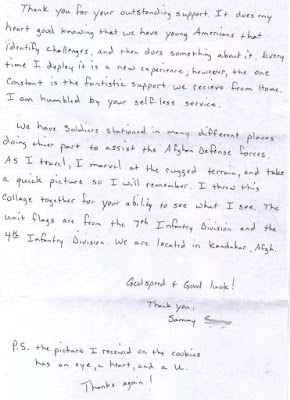 Thank you for your outstanding support. It does my
heart good knowing that we have young Americans that
identify challenges, and then does something about it. Every
time I deploy it is a new experience; however, the one
Constant is the fantistic support we recieve from Home.
I am humbled by your self-less service.
We have Soldiers stationed in many different places
doing thier part to assist the Afghan Defense forces.
As I travel, I marvel at the rugged terrain, and take
a quick picture so I will remember. I threw this
Collage together for your ability to see what I see. The
unit flags are from the 7th Infantry Division and the
4th Infantry Division. We are located in Kandahar, Afgh.
Godspeed + Good luck!
Thank you,
Sammy
P.S. the picture I received on the cookies
has an eye, a heart, and a U.
Thanks again!